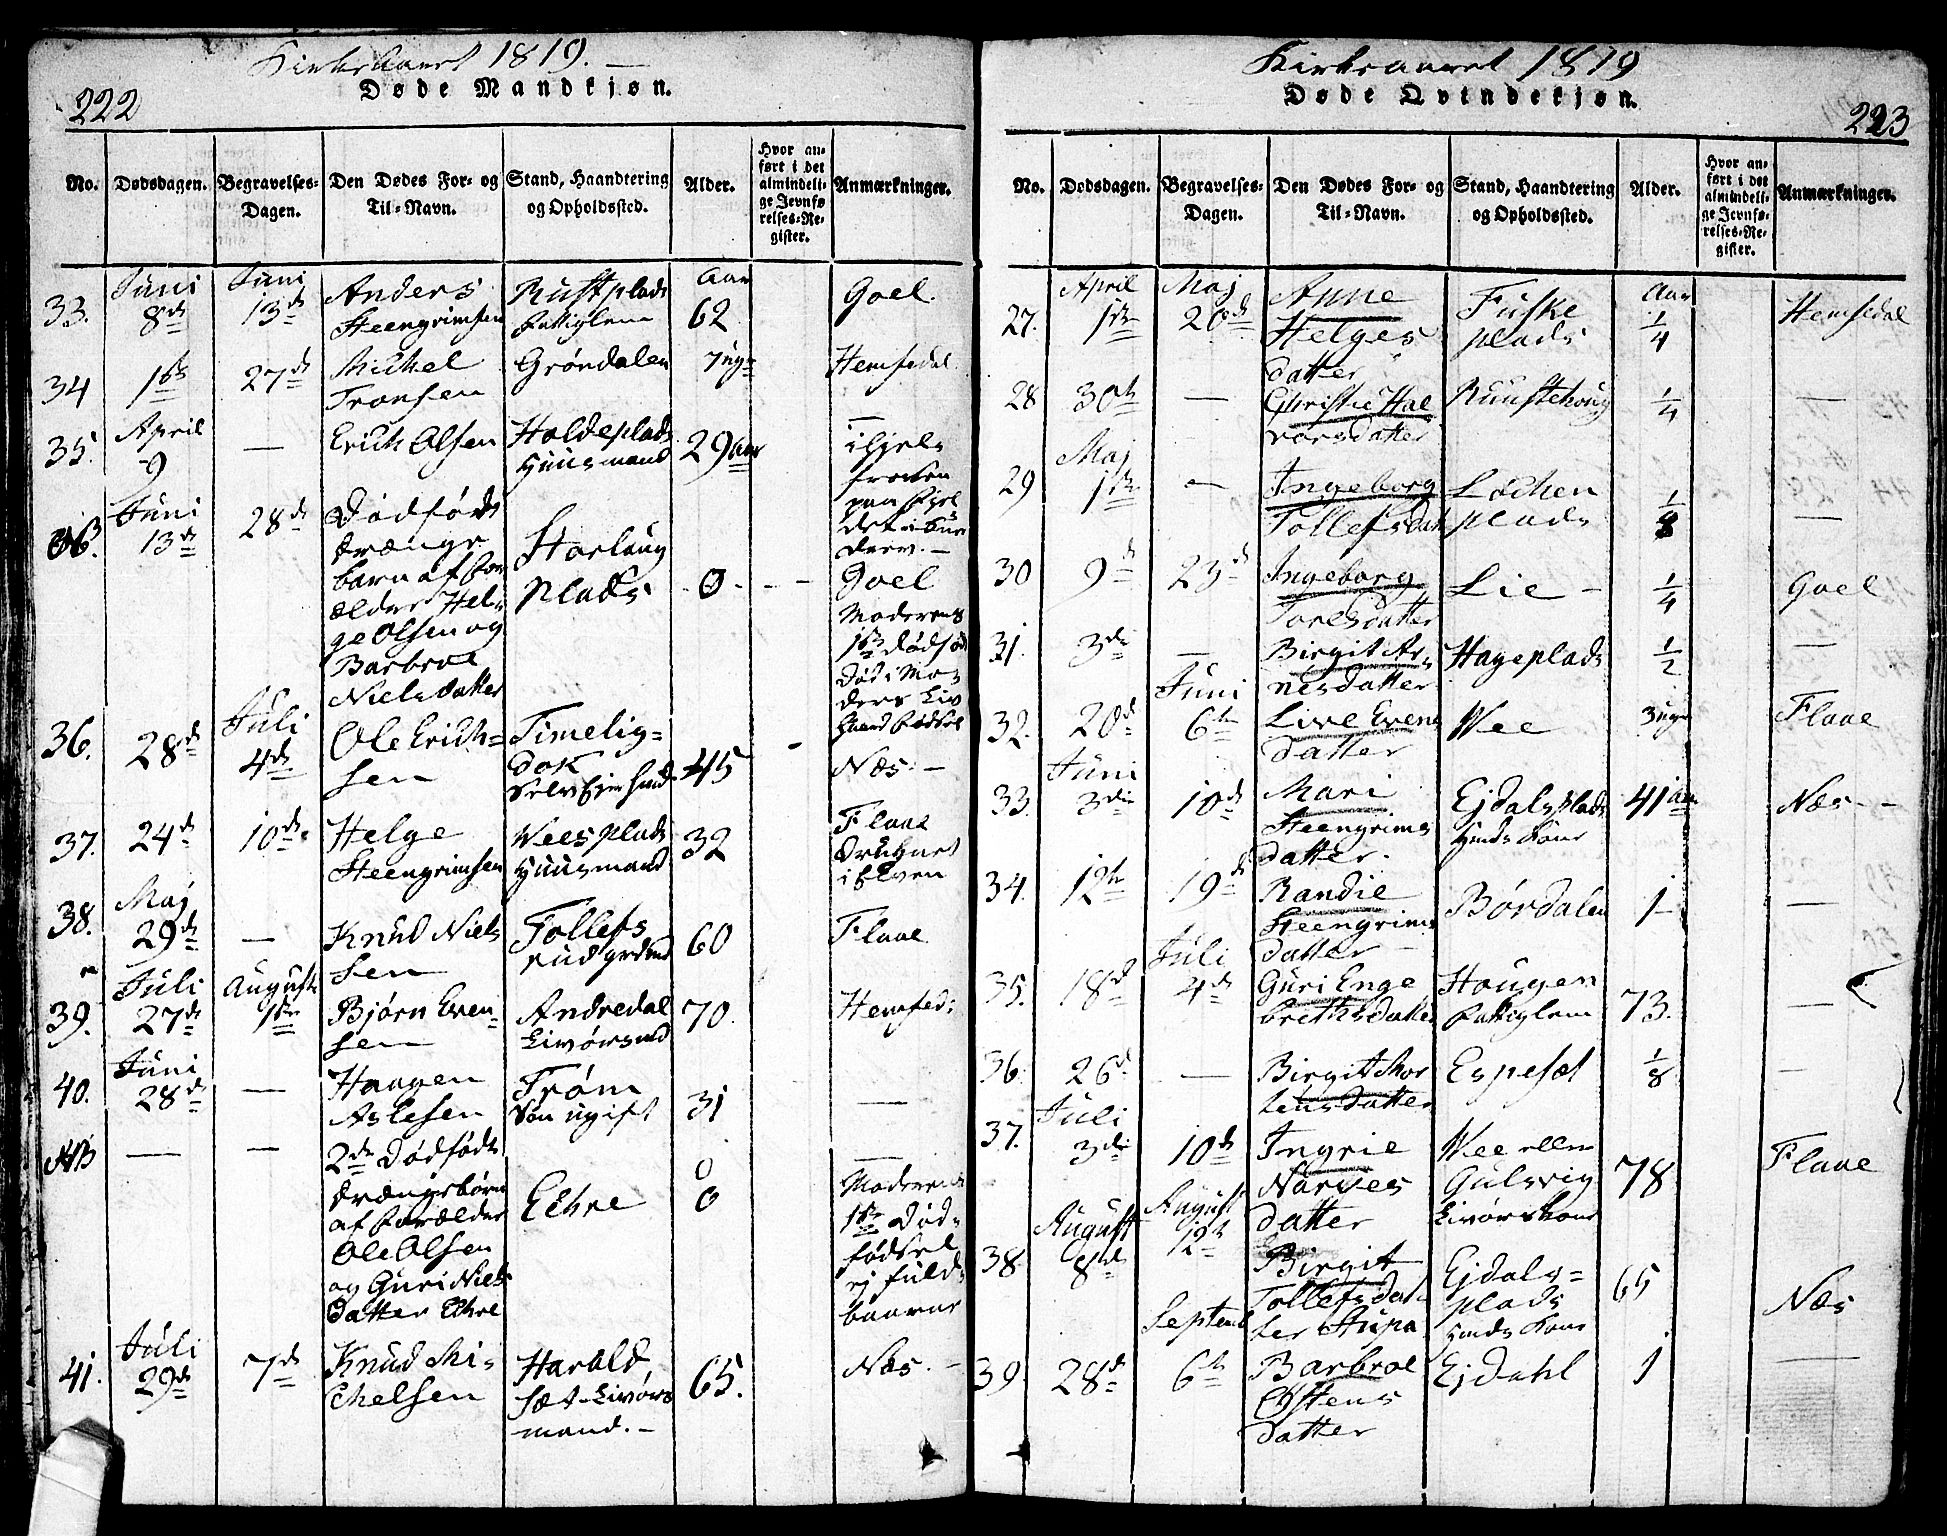 Kirkeaaret 1819. —
222
Døde Mandkjøn.
No.
Dødsdagen.
Begravelses-
Dagen.
Den Dødes For- og
Til-Navn.
Stand, Haandtering
og Opholdssted.
Alder.
Hvor an-
ført i det
almindeli-
ge Jevnfø-
relses-Re-
gister.
Anmærkninger.
33.
Juni
8de
Juni
13de
Anders
Steengrimsen
Rustplads
Fattiglem
Aar
62
Goel.
34
1ste
27de
Michel
Tronsen
Grøndalen
7 Ug
Hemsedal
35.
April
9
—
Erich Olsen
Holdeplads
Huusmand
29 aar
—
ihjel-
Juni
13de
28de
Dødfødt
Drænge
barn af For
ældre Hel-
ge Olsen og
Barbroe
Nielsdatter
Plads
0
Goel
Moderens
1ste Dødfød
Død i Mo-
ders Liv
36.
28de
Juli
4de
Ole Erich-
sen
Timelig-
dok
45
Næs. —
37.
24de
10de
Helge
Steengrimsen
Wees plads
Huusmand
32
Flaae
Druknet
i Elven
38.
Maj
29de
—
Knud Niels
sen
Tollefs
rud
60
Flaae
39.
Juli
27de
August
1ste
Bjørn Even-
sen
Andredal
70.
Hemsed:
40.
Juni
28de
—
Haagen
Aslesen
Trøm
Søn ugift
31
—
NB
—
—
2de Dødfødte
Drængebørn
af Forælder
Ole Olsen
og Guri Niels
Datter Ekre
Eekre
0
0
—
Moderens
1ste Død-
fødsel
ej fuld-
baarne
41.
Juli
29de
7de
Knud Mi-
chelsen
Harald
sæt-Livørs
mand. —
65.
Næs. —
Kirkeaaret 1819
Døde Qvindekjøn.
223
No.
Dødsdagen.
Begravelses-
Dagen.
Den Dødes For- og
Til-Navn.
Stand, Haandtering
og Opholdssted.
Alder.
Hvor an-
ført i det
almindeli-
ge Jevnfø-
relses-Re-
gister.
Anmærkninger.
27.
April
1ste
Maj
20de
Anne
Helges
datter
Fuske
plads
Aar
1/4
Hemsedal
28
30te
—
Christie Hal
vorsdatter
1/4
—
29
Maj
1ste
—
Ingeborg
Tollefsdat
Løchen
plads
1/8
—
30
9de
23de
Ingeborg
Toresdatter
Lie —
1/4
Goel
31.
3die
—
Birgit Ar-
nesdatter
Hageplads
1/2
—
32.
20de
Juni
6te
Live Evens
datter
Wee
3 uger
Flaae
33.
Juni
3die
10de
Mari
Steengrims
datter.
Ejdalsplads
Hmds Kone
41 aar
Næs —
34.
12te
19de
Randie
Steengrims
datter
Børdalen
1
—
35.
18de
Juli
4de
Guri Enge
brethsdatter
Hougen
Fattiglem
73.
—
36.
26de
—
Birgit Mor
tensdatter
Espeset
1/8
—
37.
Juli
3die
10de
Ingrie
Narves
datter
Wee ellm
Gulsvig
Livørskone
78
Flaae
38
August
8de
August
12te
Birgit
Tollefsdat-
ter Stupa
Ejdals-
plads
Hmds Kone
65
Næs
39
28de
Septemb
6te
Barbroe
Østens
datter
Ejdahl
1
—